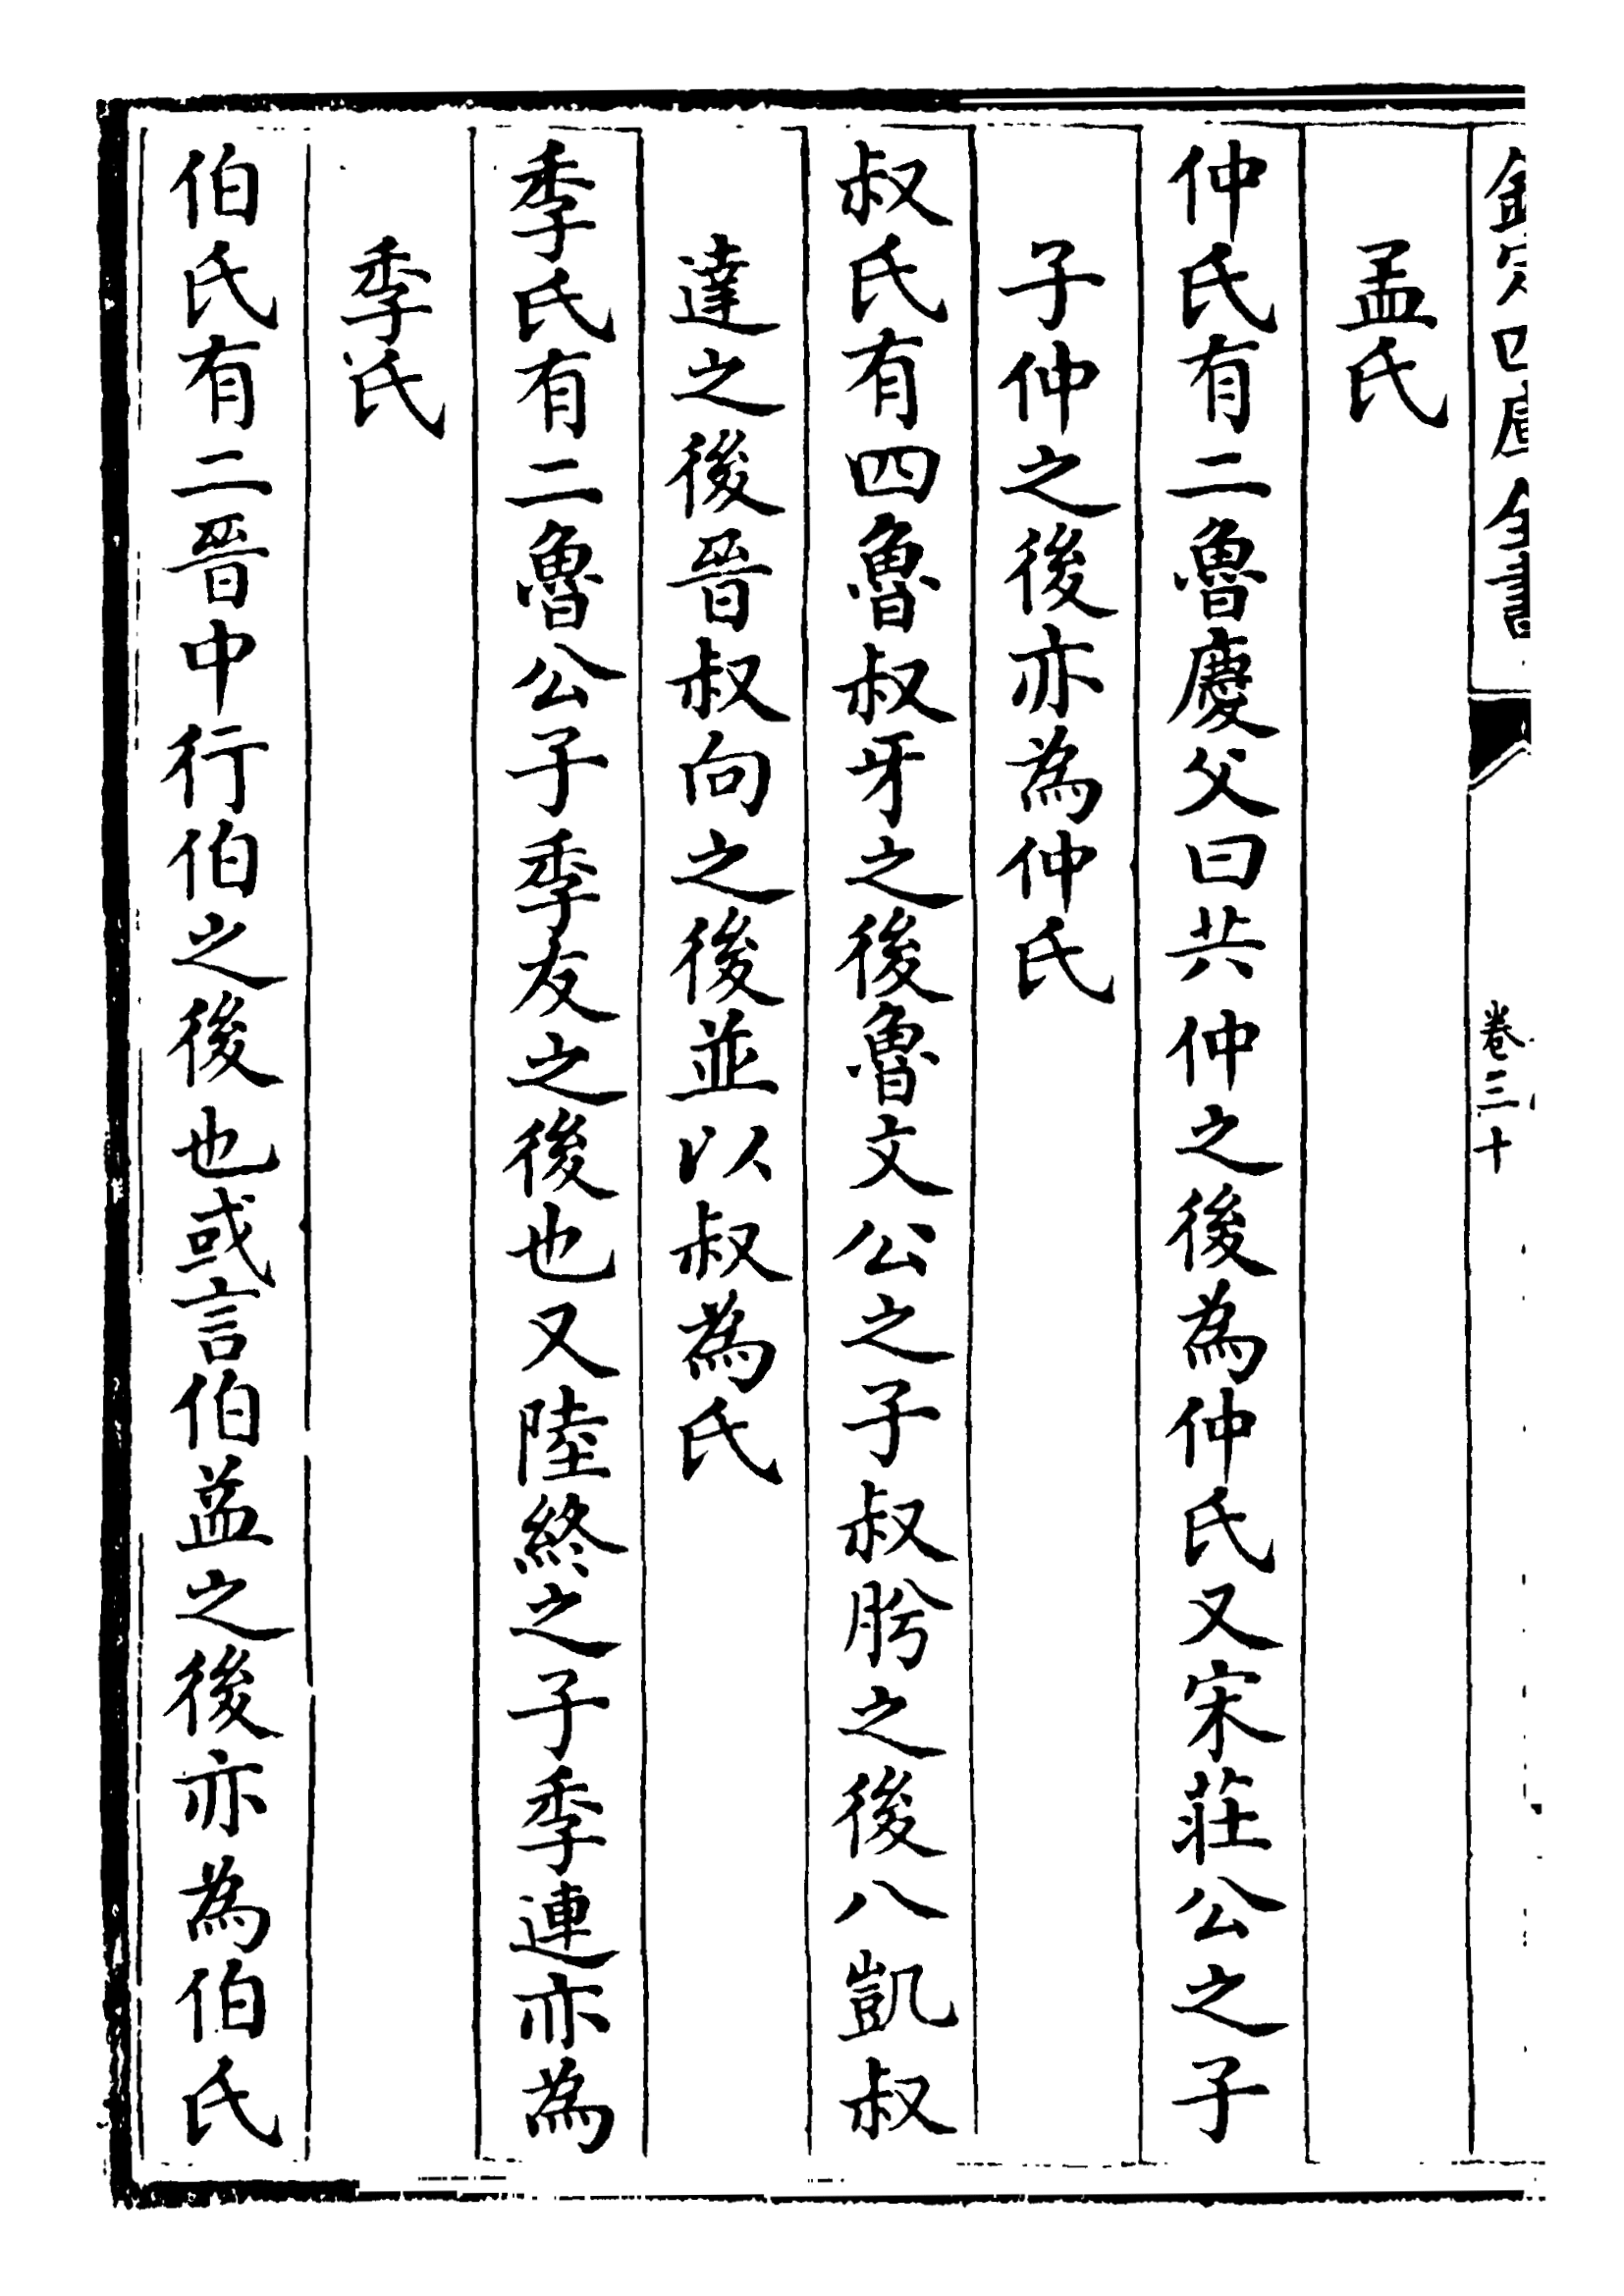 欽定四庫全書
卷三十
孟氏
仲氏有二魯慶父曰共仲之後為仲氏又宋莊公之子
子仲之後亦為仲氏
叔氏有四魯叔牙之後魯文公之子叔肸之後八凱叔
達之後晉叔向之後並以叔為氏
季氏有二魯公子季友之後也又陸終之子季連亦為
季氏
伯氏有二晉中行伯之後也或言伯益之後亦為伯氏